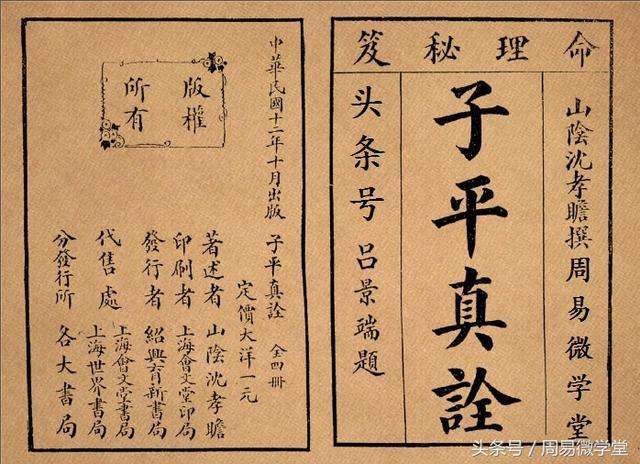 命理秘笈
山陰沈孝瞻撰周易微学堂
子平真詮
头条号呂景端題
版權所有
中華民國十二年十月出版
子平真詮 全四冊
定價大洋一元
著述者 山陰沈孝瞻
印刷者 上海會文堂印局
發行者 紹興育新書局
代售處 上海會文堂書局
上海世界書局
分發行所 各大書局
头条号 / 周易微学堂